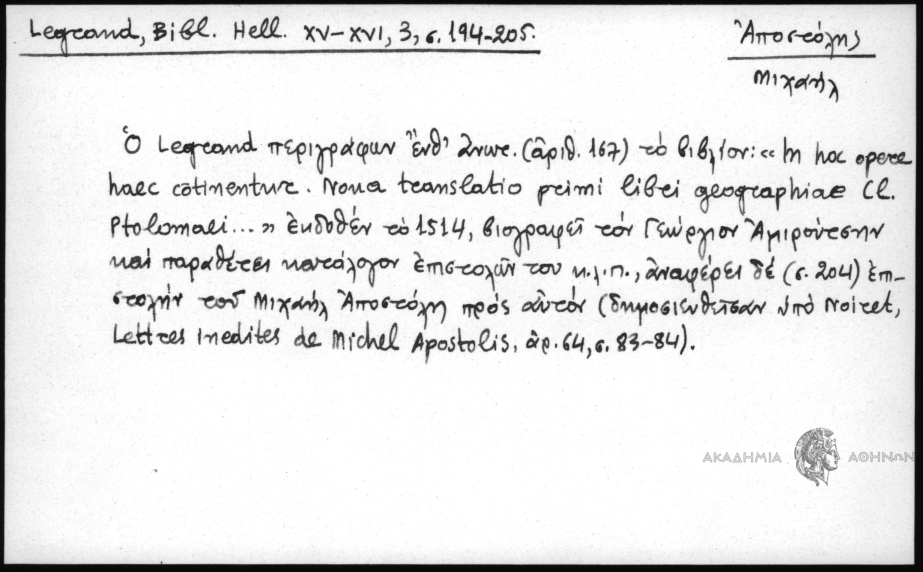 Legrand, Bibl. Hell. XV-XVI, 3, σ. 194-205.
Ἀποστόλης
Μιχαήλ
Ὁ Legrand περιγράφων ἔνθ' ἄνωτ. (ἀριθ. 167) τὸ βιβλίον: «In hoc opere
haec cotinentur. Noua translatio primi libri geographiae Cl.
Ptolomaei...» ἐκδοθέν τὸ 1514, βιογραφεῖ τὸν Γεώργιον Ἀμιρούτσην
καὶ παραθέτει κατάλογον ἐπιστολῶν του κ.λ.π., ἀναφέρει δέ (σ. 204) ἐπι-
στολήν τοῦ Μιχαήλ Ἀποστόλη πρὸς αὐτόν (δημοσιευθεῖσαν ὑπὸ Noiret,
Lettres inedites de Michel Apostolis, ἀρ. 64, σ. 83-84).
ΑΚΑΔΗΜΙΑ ΑΘΗΝΩΝ